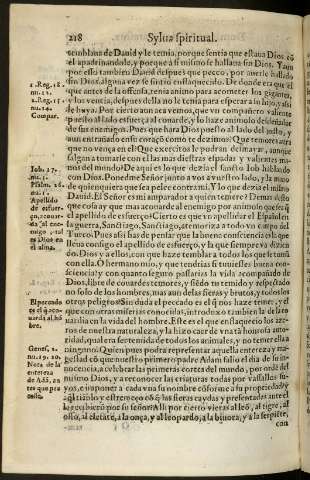 218 Sylua spiritual.
semblāte de Dauid y le temia, porque sentia que estaua Dios cō
el apadrinandole, y porque à si mismo se hallaua sin Dios. Y aun
por esso tambien Dauid despues que pecco, por auerse hallado
sin Dios, alguna vez se sintio enflaquecido. De donde era que el
que antes de la offensa, tenia animo para acometer los gigantes,
y los vencia, despues della no le tenia para esperar a su hijo, y assi
de huya. Por cierto aun aca vemos, que vn compañero valiente
puesto al lado esfuerça al couarde, y lo haze animoso delante
de sus enemigos. Pues que hara Dios puesto al lado del justo, y
aun entrañado en su coraçō como te dezimos?
que no vença en el? Que exercito le podran desmayar, aunque
salgan a tomarle con ellas mas diestras espadas y valientes manos
del mundo? De aqui es lo que dezia el santo Iob hablando
con Dios. Ponedme Señor junto a vos a vuestro lado, y la mano
de quienquiera que sea pelee contra mi. Y lo que dezia el mismo
Dauid. El Señor es mi amparador a quien temere?
cosa ay que mas acouarde al enemigo
el apellido de esfuerço? Cierto es que vn apellidar el Español en
la guerra, Sanctiago, Sanctiago, atemoriza a todo vn campo del
Turco. Pues assi has de pensar que la buena consciencia es lo que
lleua consigo el apellido de esfuerço, y la que siempre va dizien
do. Dios y a ellos, con que haze temblar a todos los que se tomā
con ella. O hermano mio, y que tendrias si tuuiesses buena cons
ciencia? y con quanto seguro passarias la vida acompañado de
Dios, libre de couardes temores, y siēdo tu temido y respectado
no solo de los hombres, mas aun de las fieras y brutos, y todos los
otros peligros? Sin duda el peccado es el q̄ nos haze temer, y el
que con otras miserias conocidas, introduxo tambien la de la co
uardia en la vida del hombre. Este es el que enflaquecio los azeros
de nuestra naturaleza, y la hizo caer de vnatā honrosa auto
ridad, qual era ser temida de todos los animales, y no temer ella a
ninguno. Quien pues podra representar aquella entereza y ma
gestad cō que nuestro primero padre Adam salio el dia de su in
nocencia, a celebrar las primeras cortes del mundo, por ordē del
mismo Dios, y a reconocer las criaturas todas por vassallos su
yos, e imponer a cada vna su nombre cōforme a su propiedad?
le recibierō por su señor? Alli por cierto vieras al leō, al tigre, al
osso, al elefāte, a la onça, y al leopardo, a la biuora, y a la serpiēte,
con
1. Reg. 18.
nu. 12.
2. Reg. 15.
nu. 14.
Compar.
Iob. 17.
nu. 3.
Psalm. 26.
nu. 1.
Apellido
de esfuer-
ço, acouar-
da al ene-
migo, tal
es Dios en
el alma.
El peccado
es el q̄ aco-
uarda al hō
bre.
Genes. 2.
nu. 19. 20.
Nota de la
entereza
de Adā, an
tes que pec
casse.